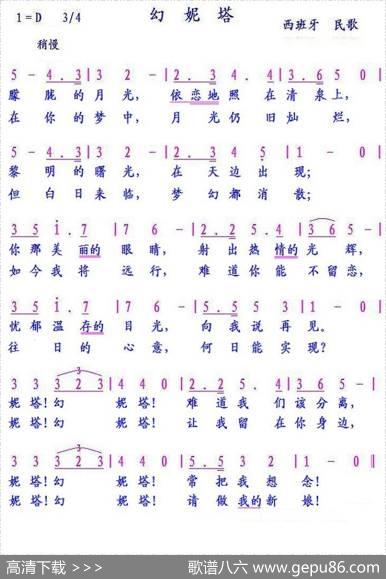 幻 妮 塔
1=D 3/4
西班牙 民歌
稍慢
5 - 4. 3 | 3 2 - | 2. 3 4. 4 | 3. 6 5 0 |
朦 胧 的 月 光, 依 恋 地 照 在 清 泉 上,
在 你 的 梦 中, 月 光 仍 旧 灿 烂,
5 - 4. 3 | 3 2 - | 2. 3 4 5 | 1 - 0 |
黎 明 的 曙 光, 在 天 边 出 现;
但 白 日 来 临, 梦 幻 都 消 散;
3 5 i. 7 | 7 6 - | 2. 2 5. 4 | 3 6 5 - |
你 那 美 丽 的 眼 睛, 射 出 热 情 的 光 辉,
如 今 我 将 远 行, 难 道 你 能 不 留 恋,
3 5 i. 7 | 7 6 - | 5. 5 5 3 | 1 - 0 |
忧 郁 温 存 的 目 光, 向 我 说 再 见。
往 日 的 心 意, 何 日 能 实 现?
3 3 3 2 3 | 4 4 0 | 2. 2 5. 4 | 3 6 5 - |
妮 塔! 幻 妮 塔! 难 道 我 们 该 分 离,
妮 塔! 幻 妮 塔! 让 我 留 在 你 身 边,
3 3 3 2 3 | 4 4 0 | 5. 5 3 2 | 1 - 0 ‖
妮 塔! 幻 妮 塔! 常 把 我 想 念!
妮 塔! 幻 妮 塔! 请 做 我 的 新 娘!
高清下载 >>> 歌谱八六 www.gepu86.com